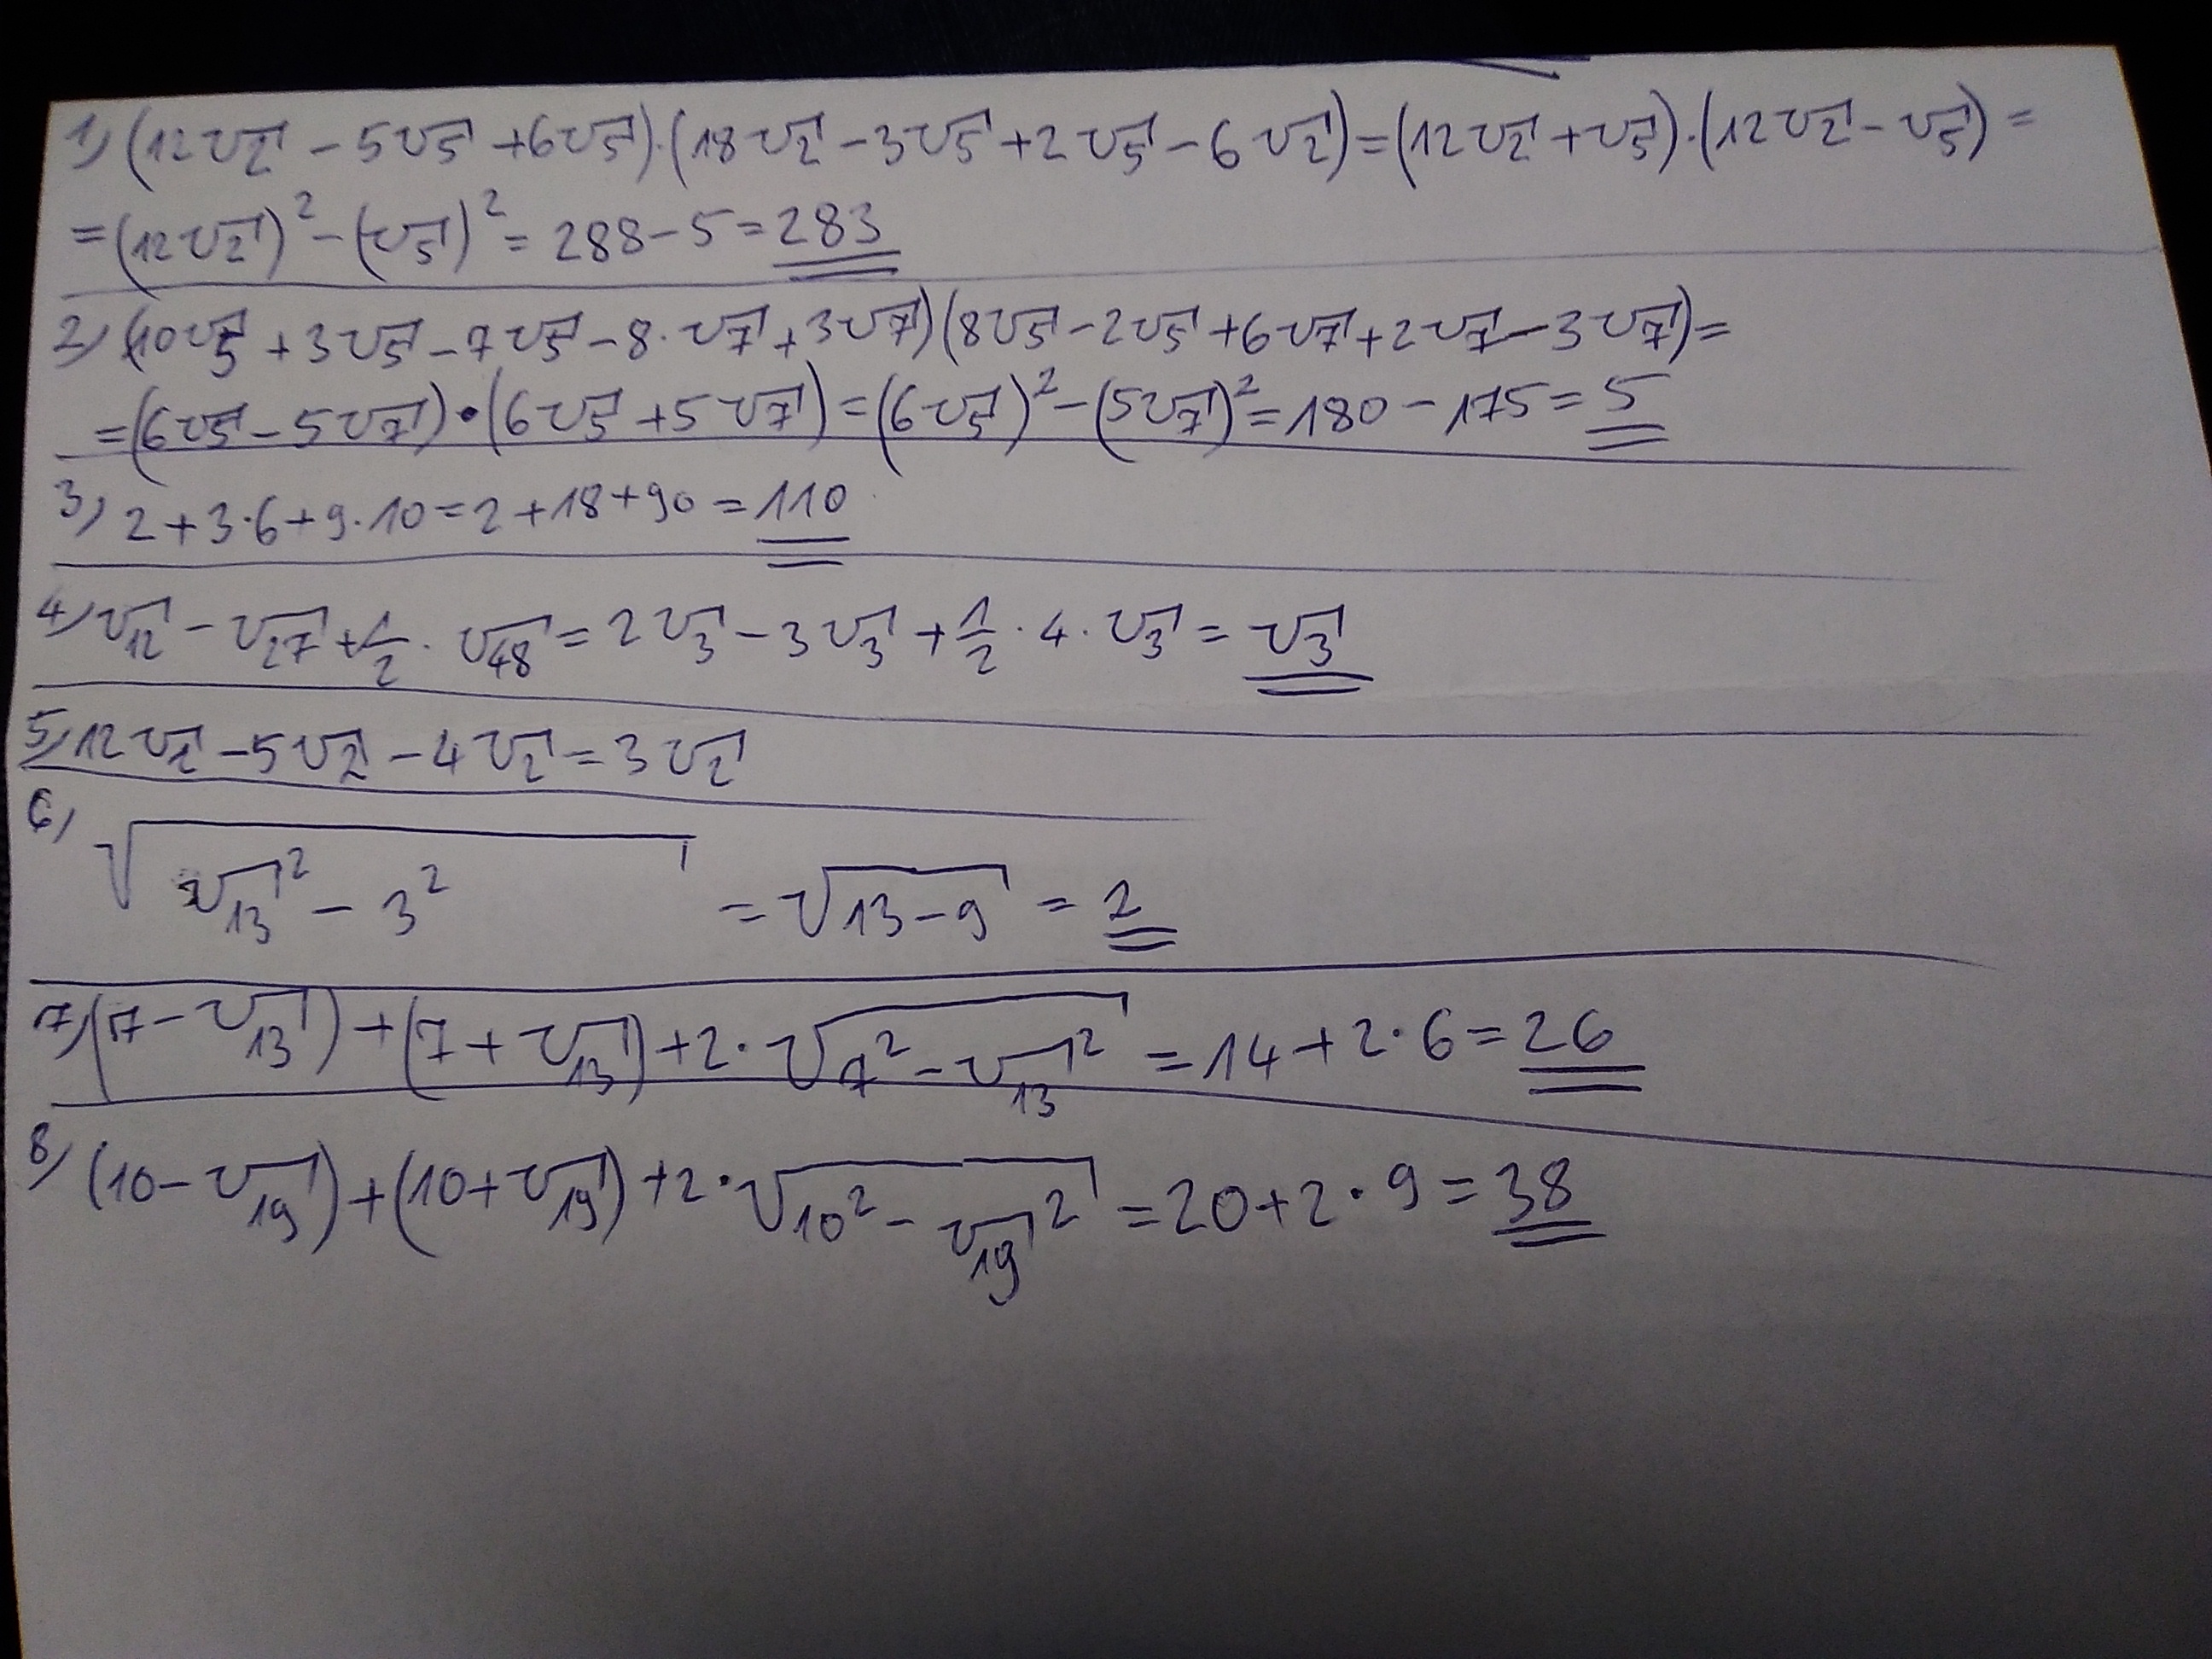 1) (12√2 - 5√5 + 6√5)·(18√2 - 3√5 + 2√5 - 6√2) = (12√2 + √5)·(12√2 - √5) =
= (12√2)² - (√5)² = 288 - 5 = 283
2) (10√5 + 3√5 - 7√5 - 8·√7 + 3√7)(8√5 - 2√5 + 6√7 + 2√7 - 3√7) =
= (6√5 - 5√7)·(6√5 + 5√7) = (6√5)² - (5√7)² = 180 - 175 = 5
3) 2 + 3·6 + 9·10 = 2 + 18 + 90 = 110
4) √12 - √27 + 1/2·√48 = 2√3 - 3√3 + 1/2·4·√3 = √3
5) 12√2 - 5√2 - 4√2 = 3√2
6) √(√13² - 3²) = √(13 - 9) = 2
7) (7 - √13) + (7 + √13) + 2·√(7² - √13²) = 14 + 2·6 = 26
8) (10 - √19) + (10 + √19) + 2·√(10² - √19²) = 20 + 2·9 = 38